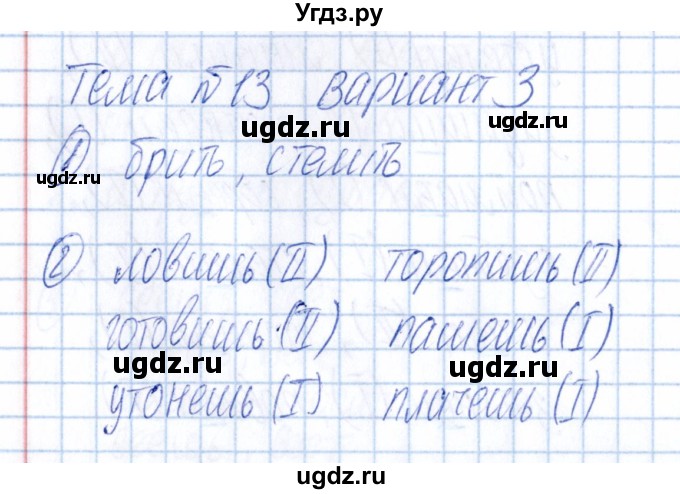 Угдз.ру
Тема №13 вариант 3
ugdz.ru
① брить, стелить
ugdz.ru
ugdz.ru
② ловишь (II) торопишь (II)
готовишь (II) пашешь (I)
ugdz.ru ugdz.ru
утонешь (I) плачешь (I)
ugdz.ru